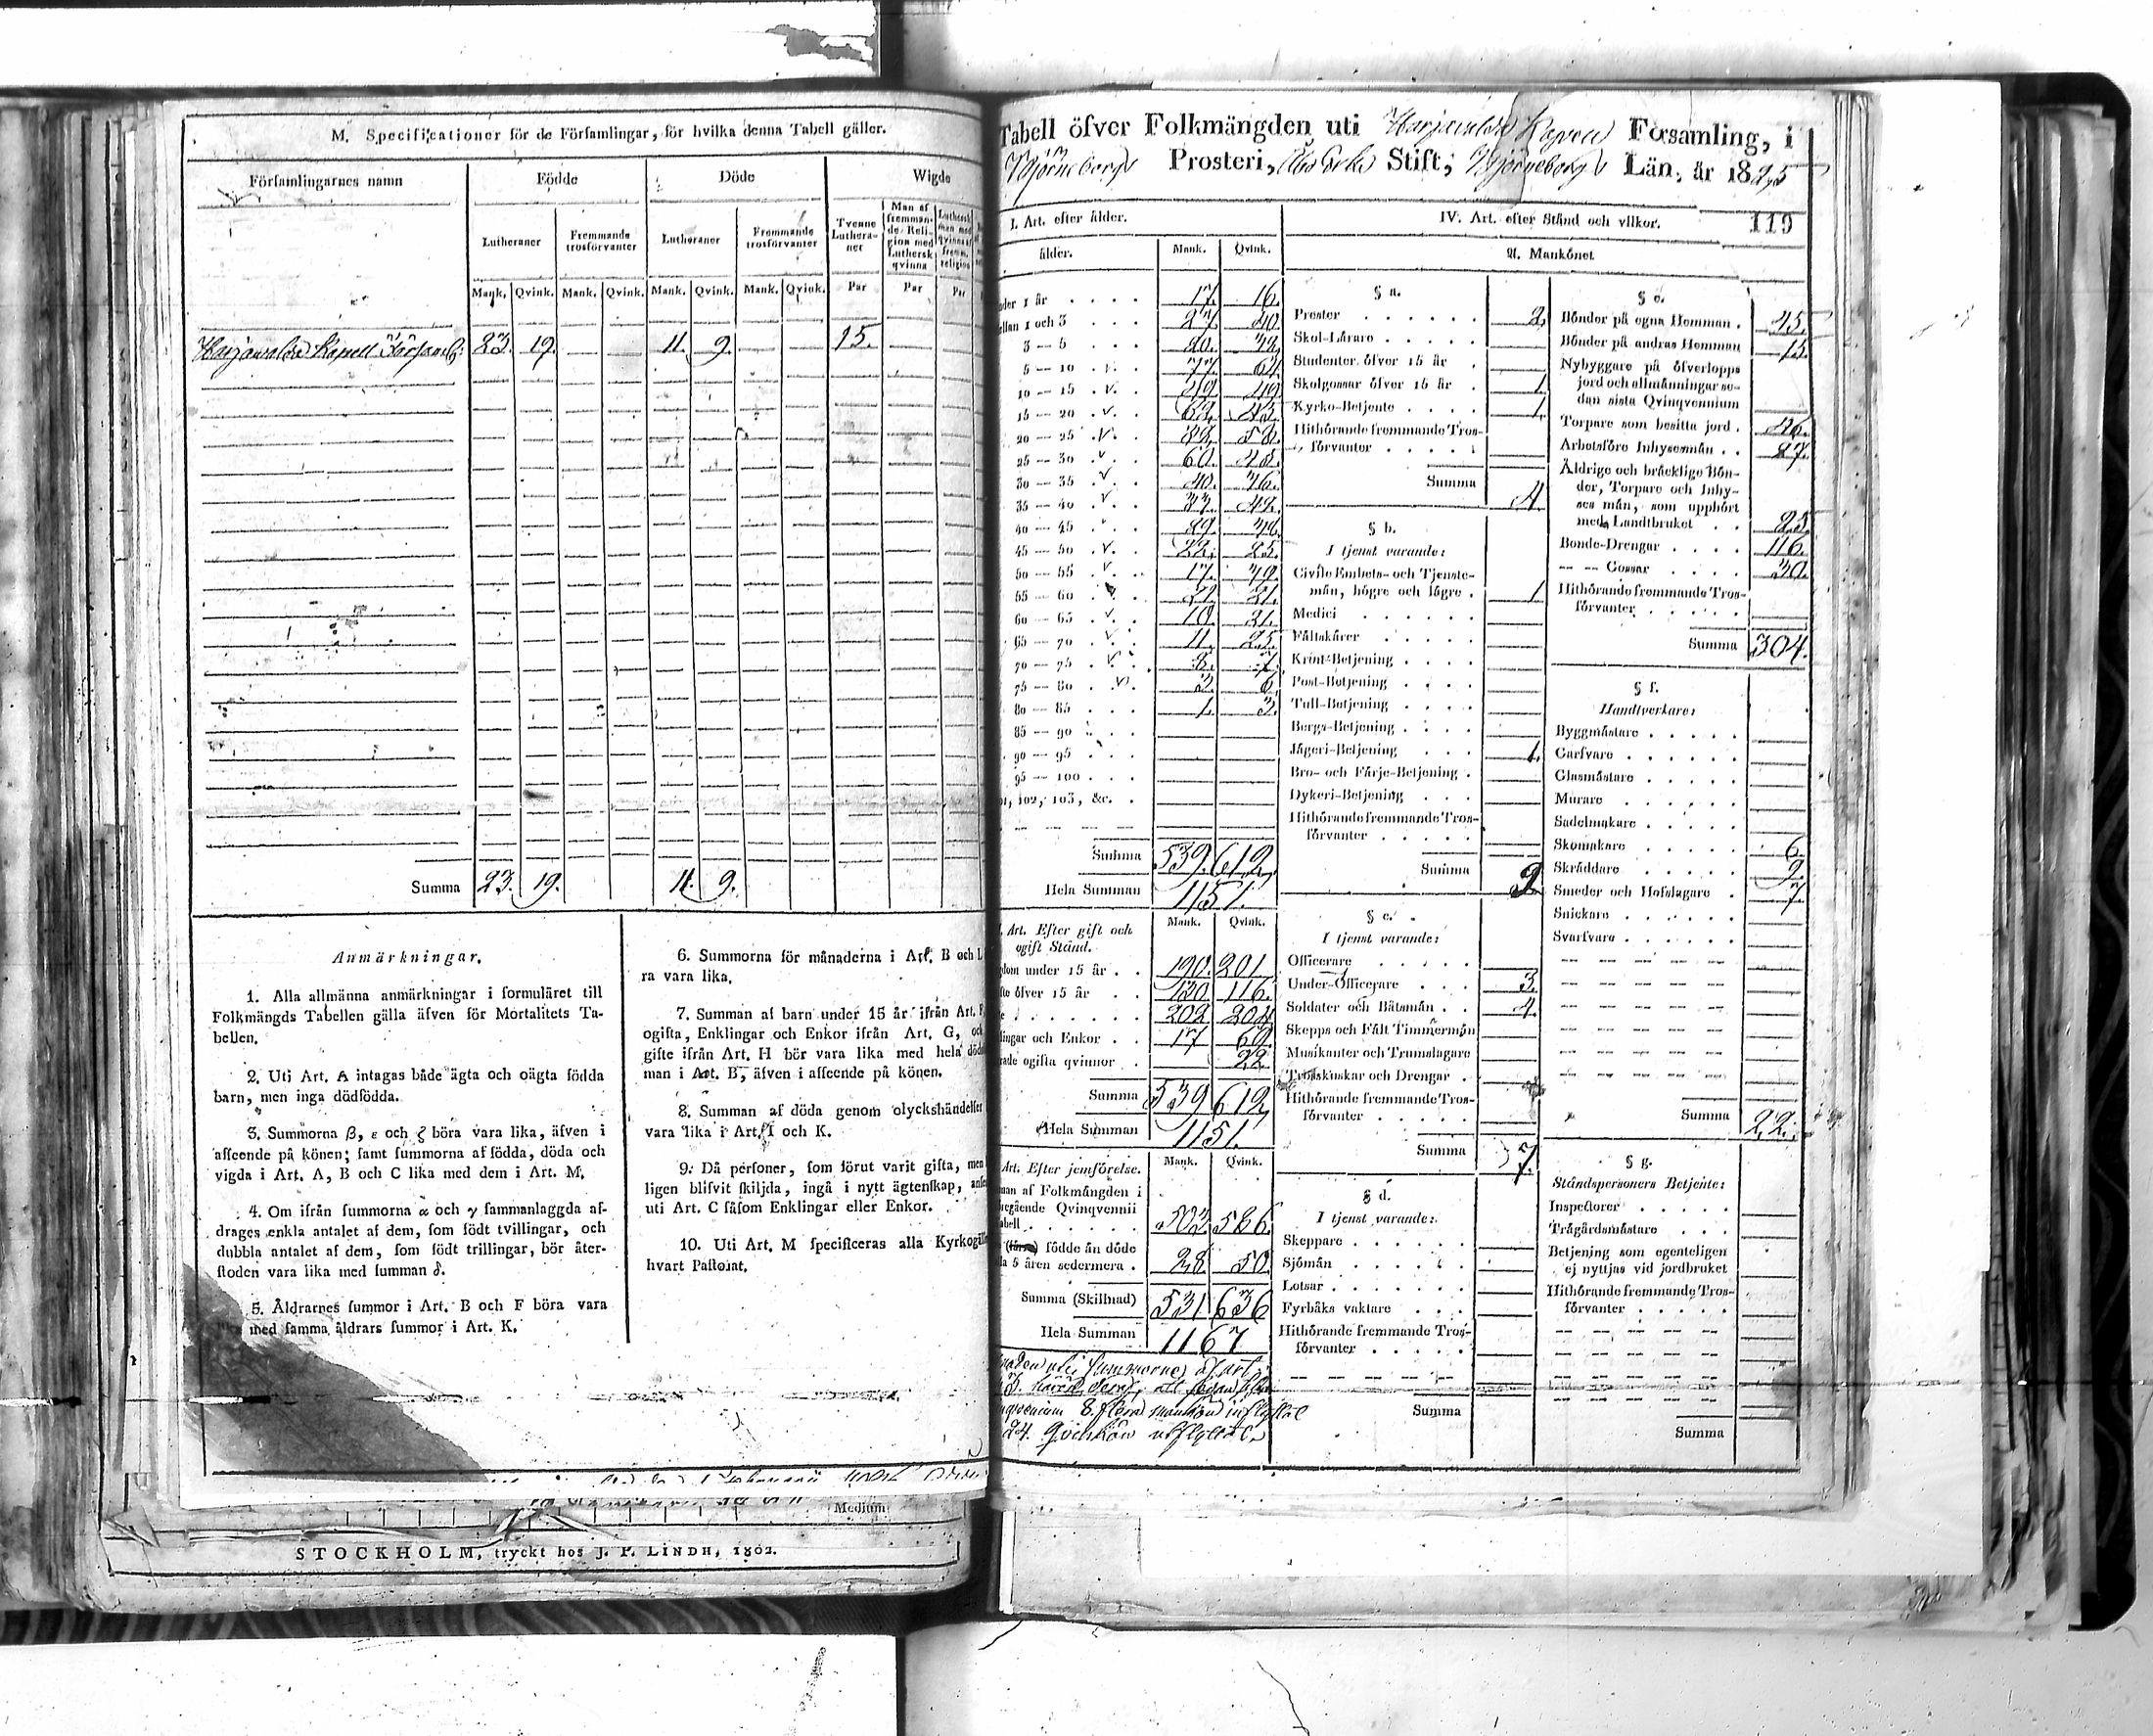 M. Specificationer för de Församlingar, för hvilka denna Tabell gäller.
Församlingarnes namn Födde Döde Wigde
Lutheraner Fremmande trosförvanter Lutheraner Fremmande trosförvanter Tvenne Lutheraner Man af fremmande Religion med Luthersk qvinna
Mank. Qvink. Mank. Qvink. Mank. Qvink. Mank. Qvink. Par Par Par
Harjawalda Kapell 23. 19. 11. 9. 15.
Summa 23. 19. 11. 9.
Anmärkningar.
1. Alla allmänna anmärkningar i formuläret till
Folkmängds Tabellen gälla äfven för Mortalitets Ta-
bellen.
2. Uti Art. A intagas både ägta och oägta födda
barn, men inga dödfödda.
3. Summorna β, ε och ζ böra vara lika, äfven i
afseende på könen; samt summorna af födda, döda och
vigda i Art. A, B och C lika med dem i Art. M.
4. Om ifrån summorna α och γ sammanlaggda af-
drages enkla antalet af dem, som födt tvillingar, och
dubbla antalet af dem, som födt trillingar, bör åter-
stoden vara lika med summan δ.
5. Åldrarnes summor i Art. B och F böra vara
med samma åldrars summor i Art. K.
6. Summorna för månaderna i Art. B och L
ra vara lika.
7. Summan af barn under 15 år ifrån Art. F,
ogifta, Enklingar och Enkor ifrån Art. G, och
gifte ifrån Art. H bör vara lika med hela
man i Art. B, äfven i afseende på könen.
8. Summan af döda genom olyckshändelser
vara lika i Art. I och K.
9. Då personer, som förut varit gifta, men
ligen blifvit skiljda, ingå i nytt ägtenskap,
uti Art. C såsom Enklingar eller Enkor.
10. Uti Art. M specificeras alla
hvart Pastorat.
Medium
STOCKHOLM, tryckt hos J. P. LINDH, 1802.
Tabell öfver Folkmängden uti Harjawalda Församling, i
Björneborgs Prosteri, Åbo Stift, Björneborgs Län, år 1825
119
I. Art. efter ålder.
ålder. Mank. Qvink.
1 år 17. 16.
1 och 3 27. 40.
3 — 5
5 — 10 77. 64.
10 — 15 49. 49.
15 — 20 62. 43.
20 — 25 58.
25 — 30 60. 48.
30 — 35 40. 46.
35 — 40 37. 42.
40 — 45
45 — 50 22. 25.
50 — 55 17. 49.
55 — 60 21.
60 — 65 10. 31.
65 — 70 11. 25.
70 — 75 3. 7.
75 — 80 6.
80 — 85 1. 3.
85 — 90
90 — 95
95 — 100
102, 103, &c.
Summa 539. 612.
Hela Summan 1151.
Art. Efter gift och
ogift Stånd.
Mank. Qvink.
under 15 år 190. 201.
öfver 15 år 130 116.
202 204
och Enkor 17 69.
ogifta qvinnor 22.
Summa 539 612.
Hela Summan 1151.
Art. Efter jemförelse. Mank. Qvink.
af Folkmängden i
Qvinqvennii
503 586.
födde än döde
5 åren sedermera 28. 50.
Summa (Skillnad) 531 636
Hela Summan 1167
8. flera mankön inflyttat
24. Qvinkön utflyttat
IV. Art. efter Stånd och vilkor.
A. Mankönet
§ a.
Prester 2.
Skol-Lärare
Studenter öfver 15 år
Skolgossar öfver 15 år 1.
Kyrko-Betjente 1.
Hithörande fremmande Tros-
förvanter
Summa 4.
§ b.
I tjenst varande:
Civile Embets- och Tjenste-
män, högre och lägre 1
Medici
Fältskärer
Kront-Betjening
Post-Betjening
Tull-Betjening
Bergs-Betjening
Jägeri-Betjening 1.
Bro- och Färje-Betjening
Dykeri-Betjening
Hithörande fremmande Tros-
förvanter
Summa 2.
§ c.
I tjenst varande:
Officerare
Under-Officerare 3.
Soldater och Båtsmän 4.
Skepps och Fält Timmermän
Musikanter och Trumslagare
Trosskuskar och Drengar
Hithörande fremmande Tros-
förvanter
Summa 7.
§ d.
I tjenst varande:
Skeppare
Sjömän
Lotsar
Fyrbåks vaktare
Hithörande fremmande Tros-
förvanter
Summa
§ e.
Bönder på egna Hemman 45.
Bönder på andras Hemman 15.
Nybyggare på öfverlopps
jord och allmänningar se-
dan sista Qvinqvennium
Torpare som besitta jord
Arbetsföre Inhysesmän
Åldrige och bräcklige Bön-
der, Torpare och Inhy-
ses män, som upphört
med Landtbruket 25.
Bonde-Drengar 116.
— — Gossar 30.
Hithörande fremmande Tros-
förvanter
Summa 304.
§ f.
Handtverkare:
Byggmästare
Garfvare
Glasmästare
Murare
Sadelmakare
Skomakare 6.
Skräddare 9.
Smeder och Hofslagare 7.
Snickare
Svarfvare
Summa 22.
§ g.
Ståndspersoners Betjente:
Inspektorer
Trägårdsmästare
Betjening som egenteligen
ej nyttjas vid jordbruket
Hithörande fremmande Tros-
förvanter
Summa